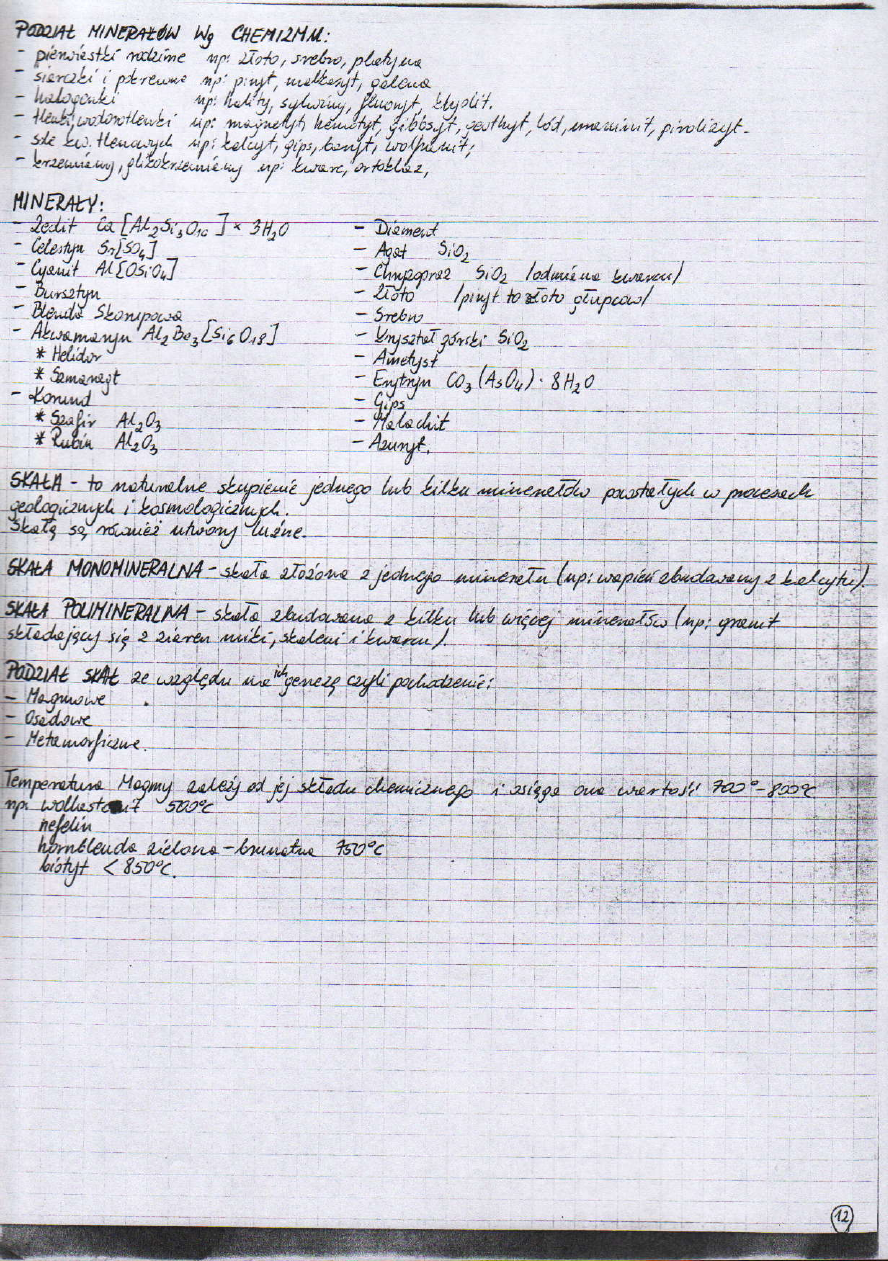 PODZIAŁ MINERAŁÓW Wg CHEMIZMU:
- pierwiastki rodzime np: złoto, srebro, platyna
- siarczki i pokrewne np: piryt, markasyt, galena
- halogenki np: hality, sylwiny, fluoryt, kryolit.
- tlenki, wodorotlenki np: magnetyt, hematyt, gibbsyt, goethyt, lód, uraninit, piroluzyt.
- sole kw. tlenowych np: kalcyt, gips, baryt, wolframit;
- krzemiany, glikokrzemiany np: kwarc, ortoklaz,
MINERAŁY:
- Zeolit Ca [Al₂Si₃O₁₀] × 3H₂O
- Celestyn Sr[SO₄]
- Cyanit Al[OSiO₄]
- Bursztyn
- Blenda Skorupowa
- Akwamaryn Al₂Be₃[Si₆O₁₈]
* Helidor
* Szmaragt
- Korund
* Szafir Al₂O₃
* Rubin Al₂O₃
- Diament
- Agat SiO₂
- Chryzopraz SiO₂ /odmiana kwarcu/
- Złoto /piryt to złoto głupców/
- Srebro
- Kryształ górski SiO₂
- Ametyst
- Erytryn CO₃(AsO₄)·8H₂O
- Gips
- Malachit
- Azuryt.
SKAŁA - to naturalne skupienie jednego lub kilku minerałów powstałych w procesach
geologicznych i kosmologicznych.
Skałą są również utwory luźne.
SKAŁA MONOMINERALNA - skała złożona z jednego minerału (np: wapień zbudowany z kalcytu).
SKAŁA POLIMINERALNA - skała zbudowana z kilku lub więcej minerałów (np: granit
składający się z ziaren miki, skaleni i kwarcu).
PODZIAŁ SKAŁ ze względu na ich genezę czyli pochodzenie:
- Magmowe
- Osadowe
- Metamorficzne.
Temperatura Magmy zależy od jej składu chemicznego i osiąga ona wartość 700° - 800°C
np: wollastonit 500°C
nefelin
hornblenda zielona - brunatna 750°C
biotyt < 850°C.
12